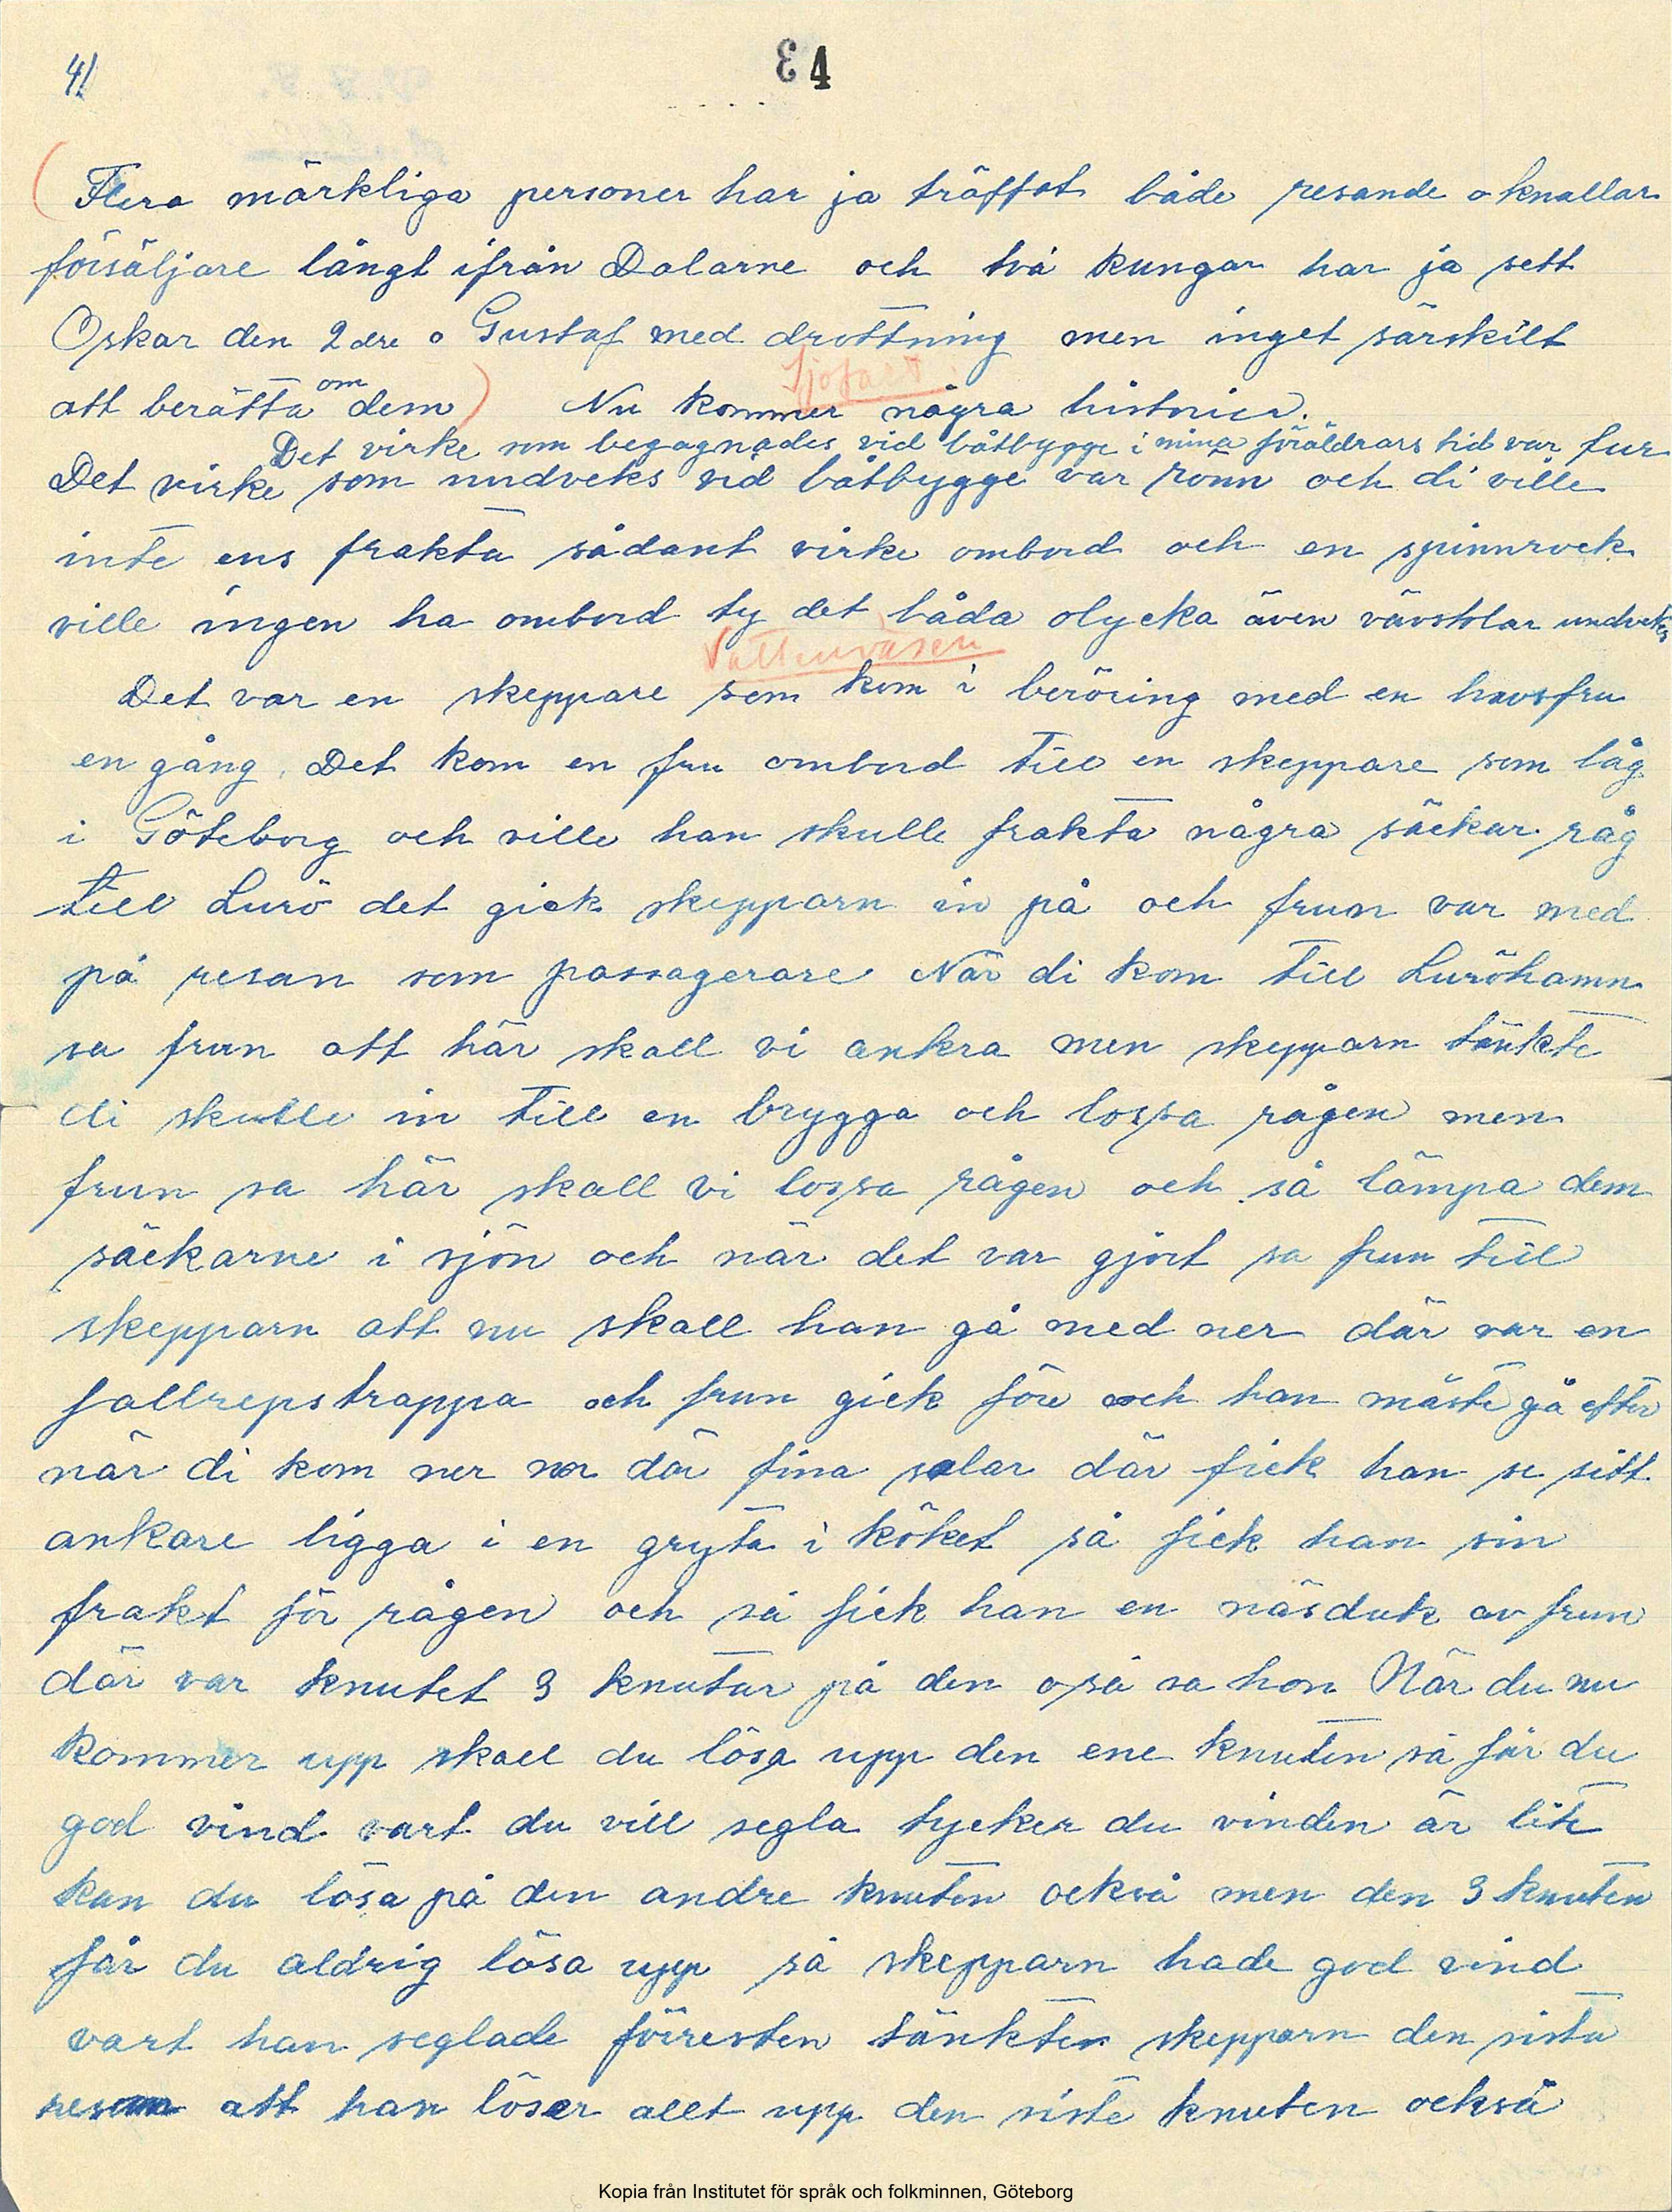 41
34
Flera märkliga personer har ja träffat både resande o knallar
försäljare långt ifrån Dalarne och två kungar har ja sett
Oskar den 2dre o Gustaf med drottning men inget särskilt
Sjöfart.
om
att berätta dem) Nu kommer några historier.
Det virke som begagnades vid båtbygge i mina föräldrars tid var fur
Det virke som undveks vid båtbygge var rönn och di ville
inte ens frakta sådant virke ombord och en spinnrock
ville ingen ha ombord ty det båda olycka även vävstolar undveks
Vattenväsen
Det var en skeppare som kom i beröring med en havsfru
en gång. Det kom en fru ombord till en skeppare som låg
i Göteborg och ville han skulle frakta några säckar råg
till Lurö det gick skepparn in på och frun var med
på resan som passagerare När di kom till Luröhamn
sa frun att här skall vi ankra men skepparn tänkte
di skulle in till en brygga och lossa rågen men
frun sa här skall vi lossa rågen och så lämpa dem
säckarne i sjön och när det var gjort sa frun till
skepparn att nu skall han gå med ner där var en
fallrepstrappa och frun gick före och han måste gå efter
när di kom ner var där fina salar där fick han se sitt
ankare ligga i en gryta i köket så fick han sin
frakt för rågen och så fick han en näsduk av frun
där var knutet 3 knutar på den o så sa hon När du nu
kommer upp skall du lösa upp den ene knuten så får du
god vind vart du vill segla tycker du vinden är lite
kan du lösa på den andre knuten också men den 3 knuten
får du aldrig lösa upp så skepparn hade god vind
vart han seglade förresten tänkte skepparn den sista
resan att han löser allt upp den siste knuten också
Kopia från Institutet för språk och folkminnen, Göteborg